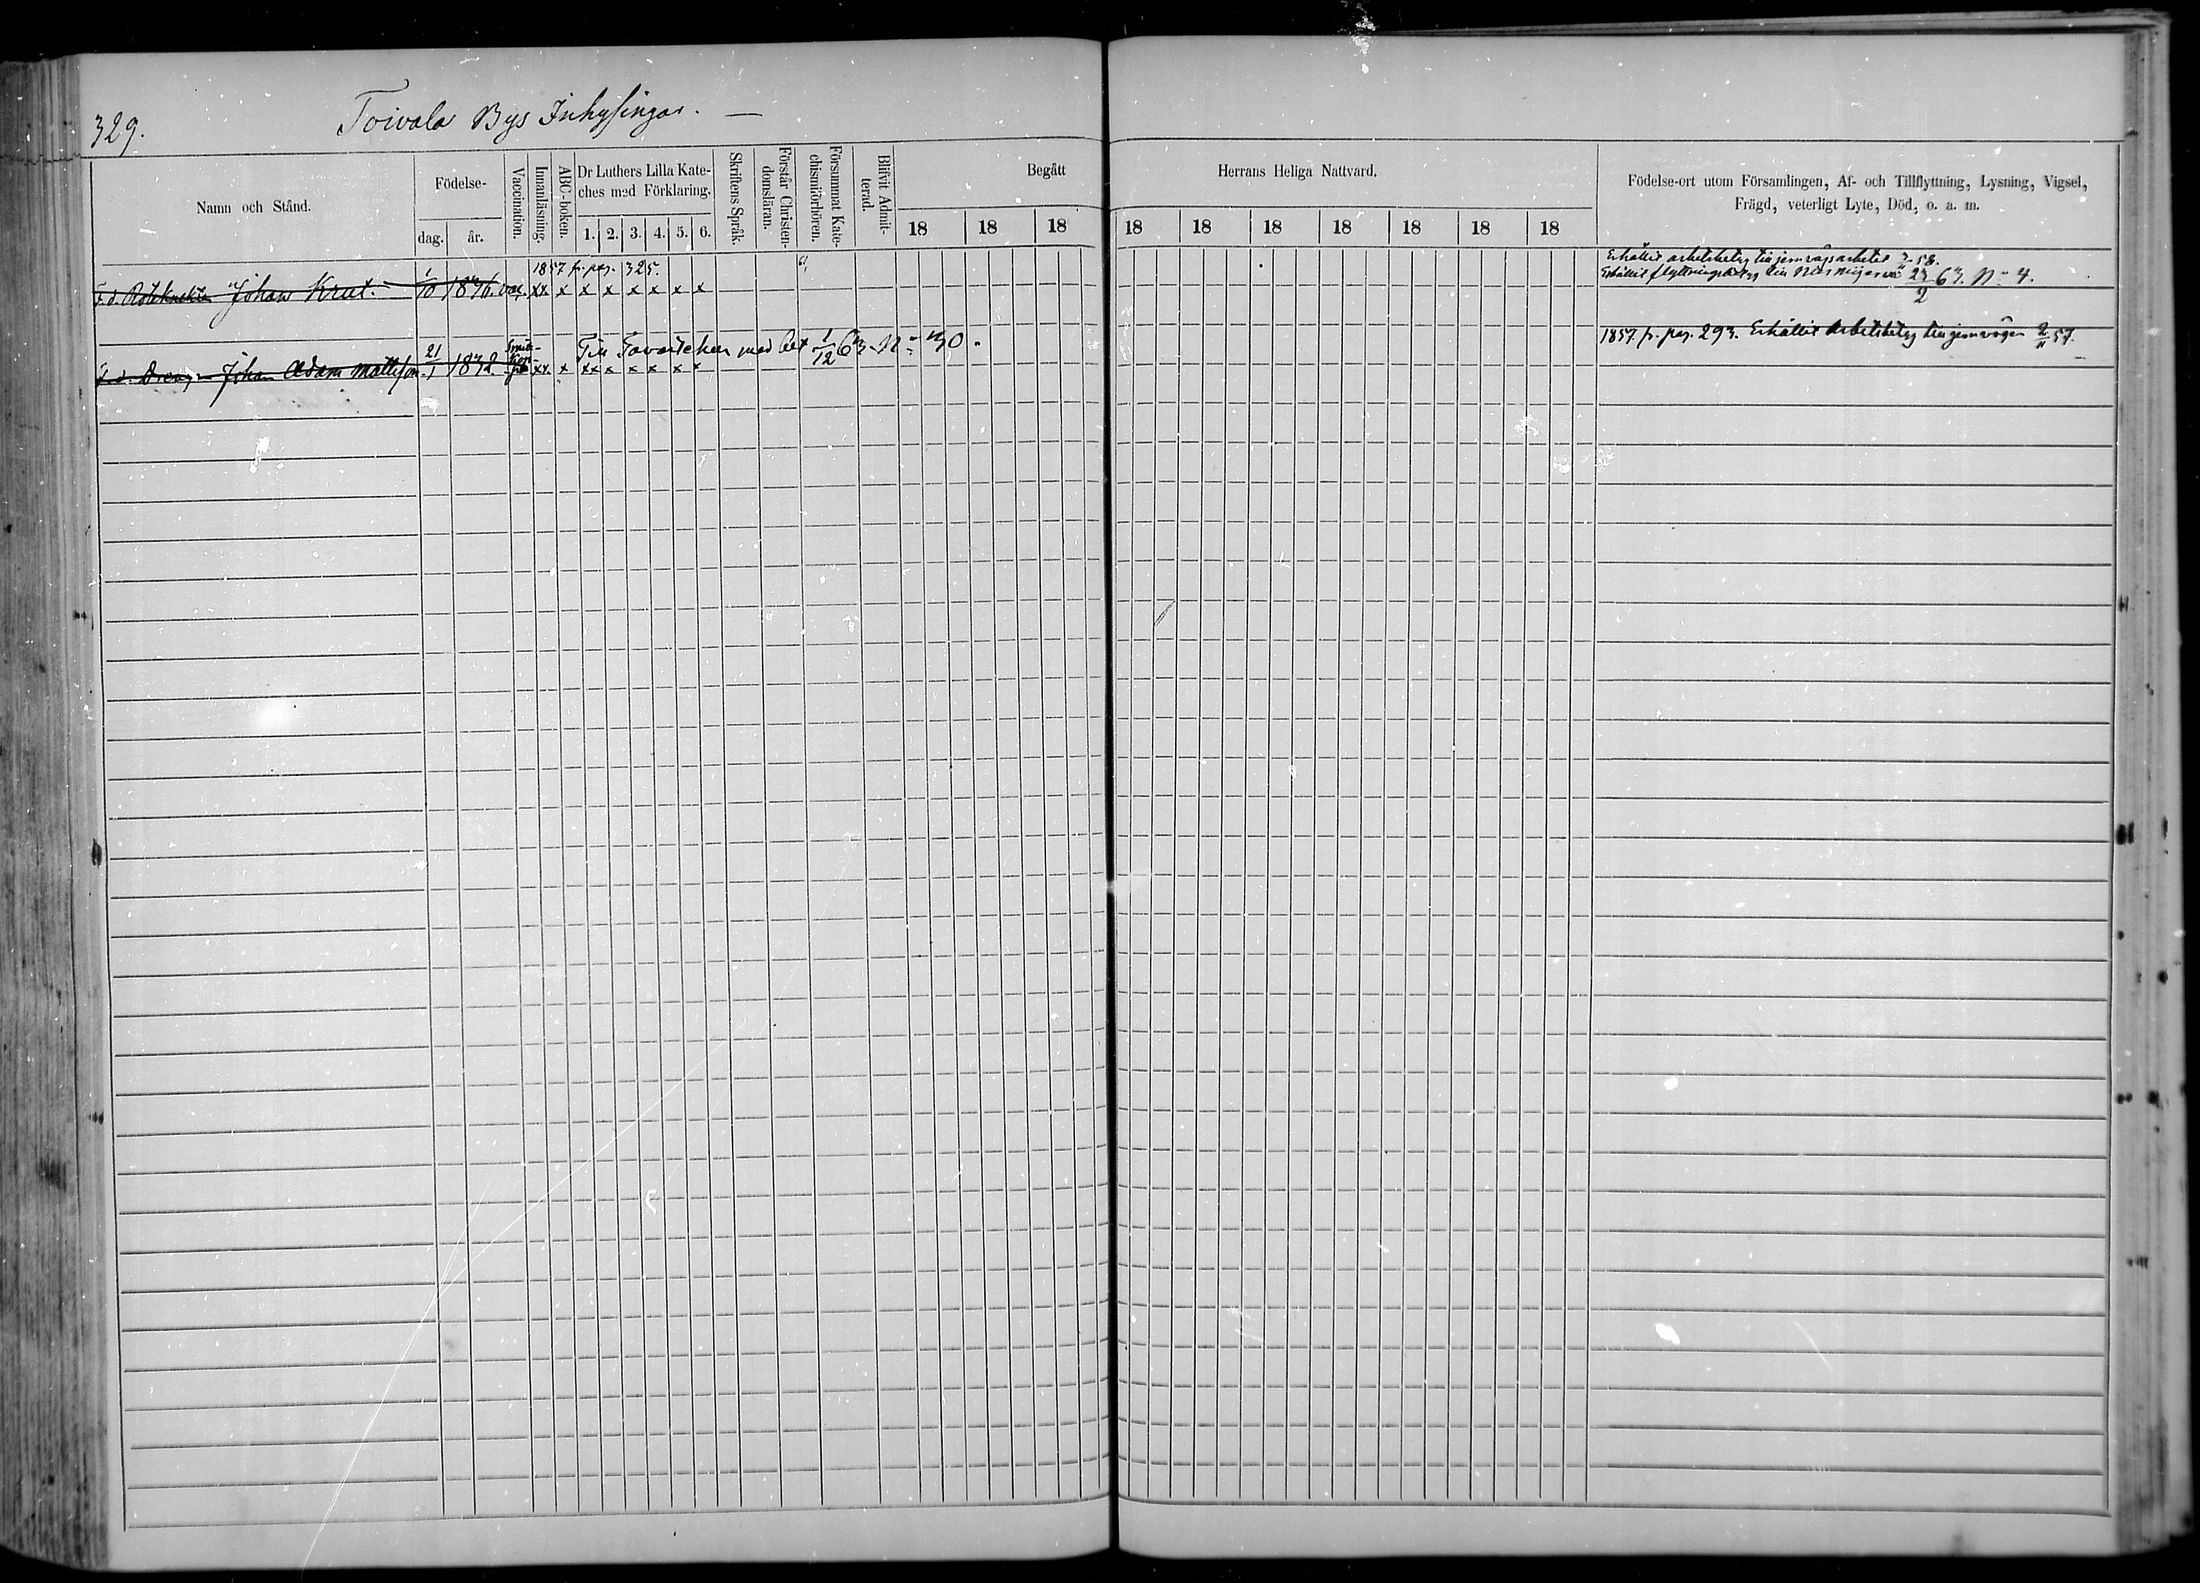 329.
Toivala Bys Inhysingar. —
Namn och Stånd.
Födelse-
dag. år.
Vaccination.
Innanläsning.
ABC-boken.
Dr Luthers Lilla Kate-
ches med Förklaring.
1. 2. 3. 4. 5. 6.
Skriftens Språk.
Förstår Christen-
domsläran.
Försummat Kate-
chismiförhören.
Blifvit Admit-
terad.
Begått Herrans Heliga Nattvard.
18 18 18 18 18 18 18 18 18 18
Födelse-ort utom Församlingen, Af- och Tillflyttning, Lysning, Vigsel,
Frägd, veterligt Lyte, Död, o. a. m.
1857 fr. pag. 325.
F. d. Roteknekten Johan Krut. 1/10 1836. vac. xx x x x x x x x
Erhållit arbetsbetyg till jernvägsarbetet 58.
Erhållit flyttningsbetyg till 23/2 63. N:o 4.
Till Tavastehus med bet 1/12 63. N:o 30.
F. d. Drengen Johan Adam Mattsson 21/1 1832. xx x xx x x x x x
1857 fr. pag. 293. Erhållit Arbetsbetyg till jernvägen 2/11 57.